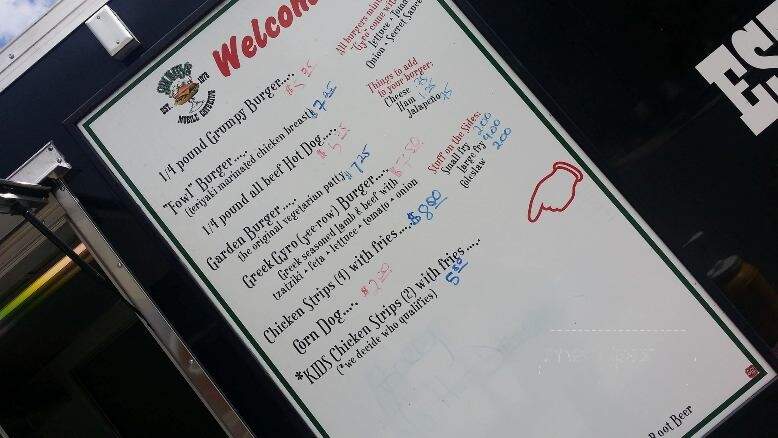 Welcome
EST. 1972
MOBILE CATERING
1/4 pound Grumpy Burger....
"Fowl" Burger..... $7.25
(teriyaki marinated chicken breast)
1/4 pound all beef Hot Dog....
Garden Burger..... $7.25
the original vegetarian patty
Greek Gyro (yee-row) Burger.... $7.50
Greek seasoned lamb & beef with
tzatziki • feta • lettuce • tomato • onion
Chicken Strips (4) with fries .... $8.00
Corn Dog.... $2.00
*KIDS Chicken Strips (2) with fries .....
5.50
(*we decide who qualifies)
All burgers
"Gyro" come
lettuce •
Onion • Secret Sauce
Things to add
to your burger:
Cheese
Ham
Jalapeño
Stuff on the Sides:
Small fry 2.00
Large fry 4.00
200
Root Beer
ES